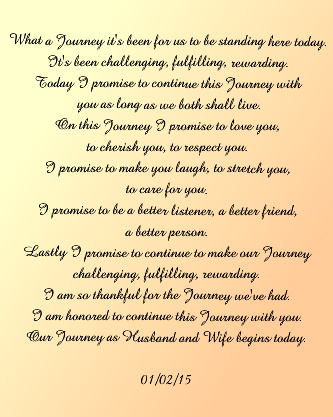 What a Journey it's been for us to be standing here today.
It's been challenging, fulfilling, rewarding.
Today I promise to continue this Journey with
you as long as we both shall live.
On this Journey I promise to love you,
to cherish you, to respect you.
I promise to make you laugh, to stretch you,
to care for you.
I promise to be a better listener, a better friend,
a better person.
Lastly I promise to continue to make our Journey
challenging, fulfilling, rewarding.
I am so thankful for the Journey we've had.
I am honored to continue this Journey with you.
Our Journey as Husband and Wife begins today.
01/02/15